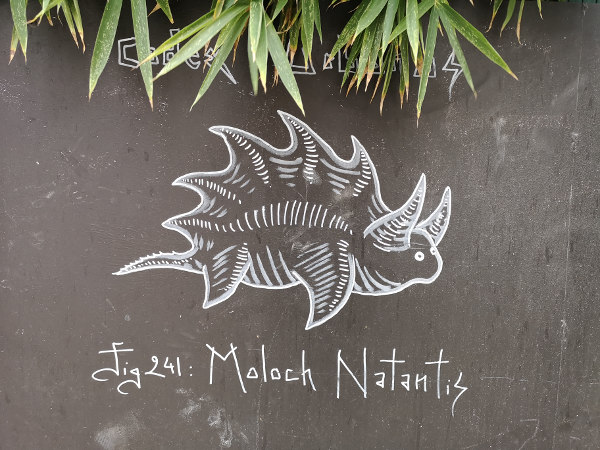 Codex
Fig 241: Moloch Natantis